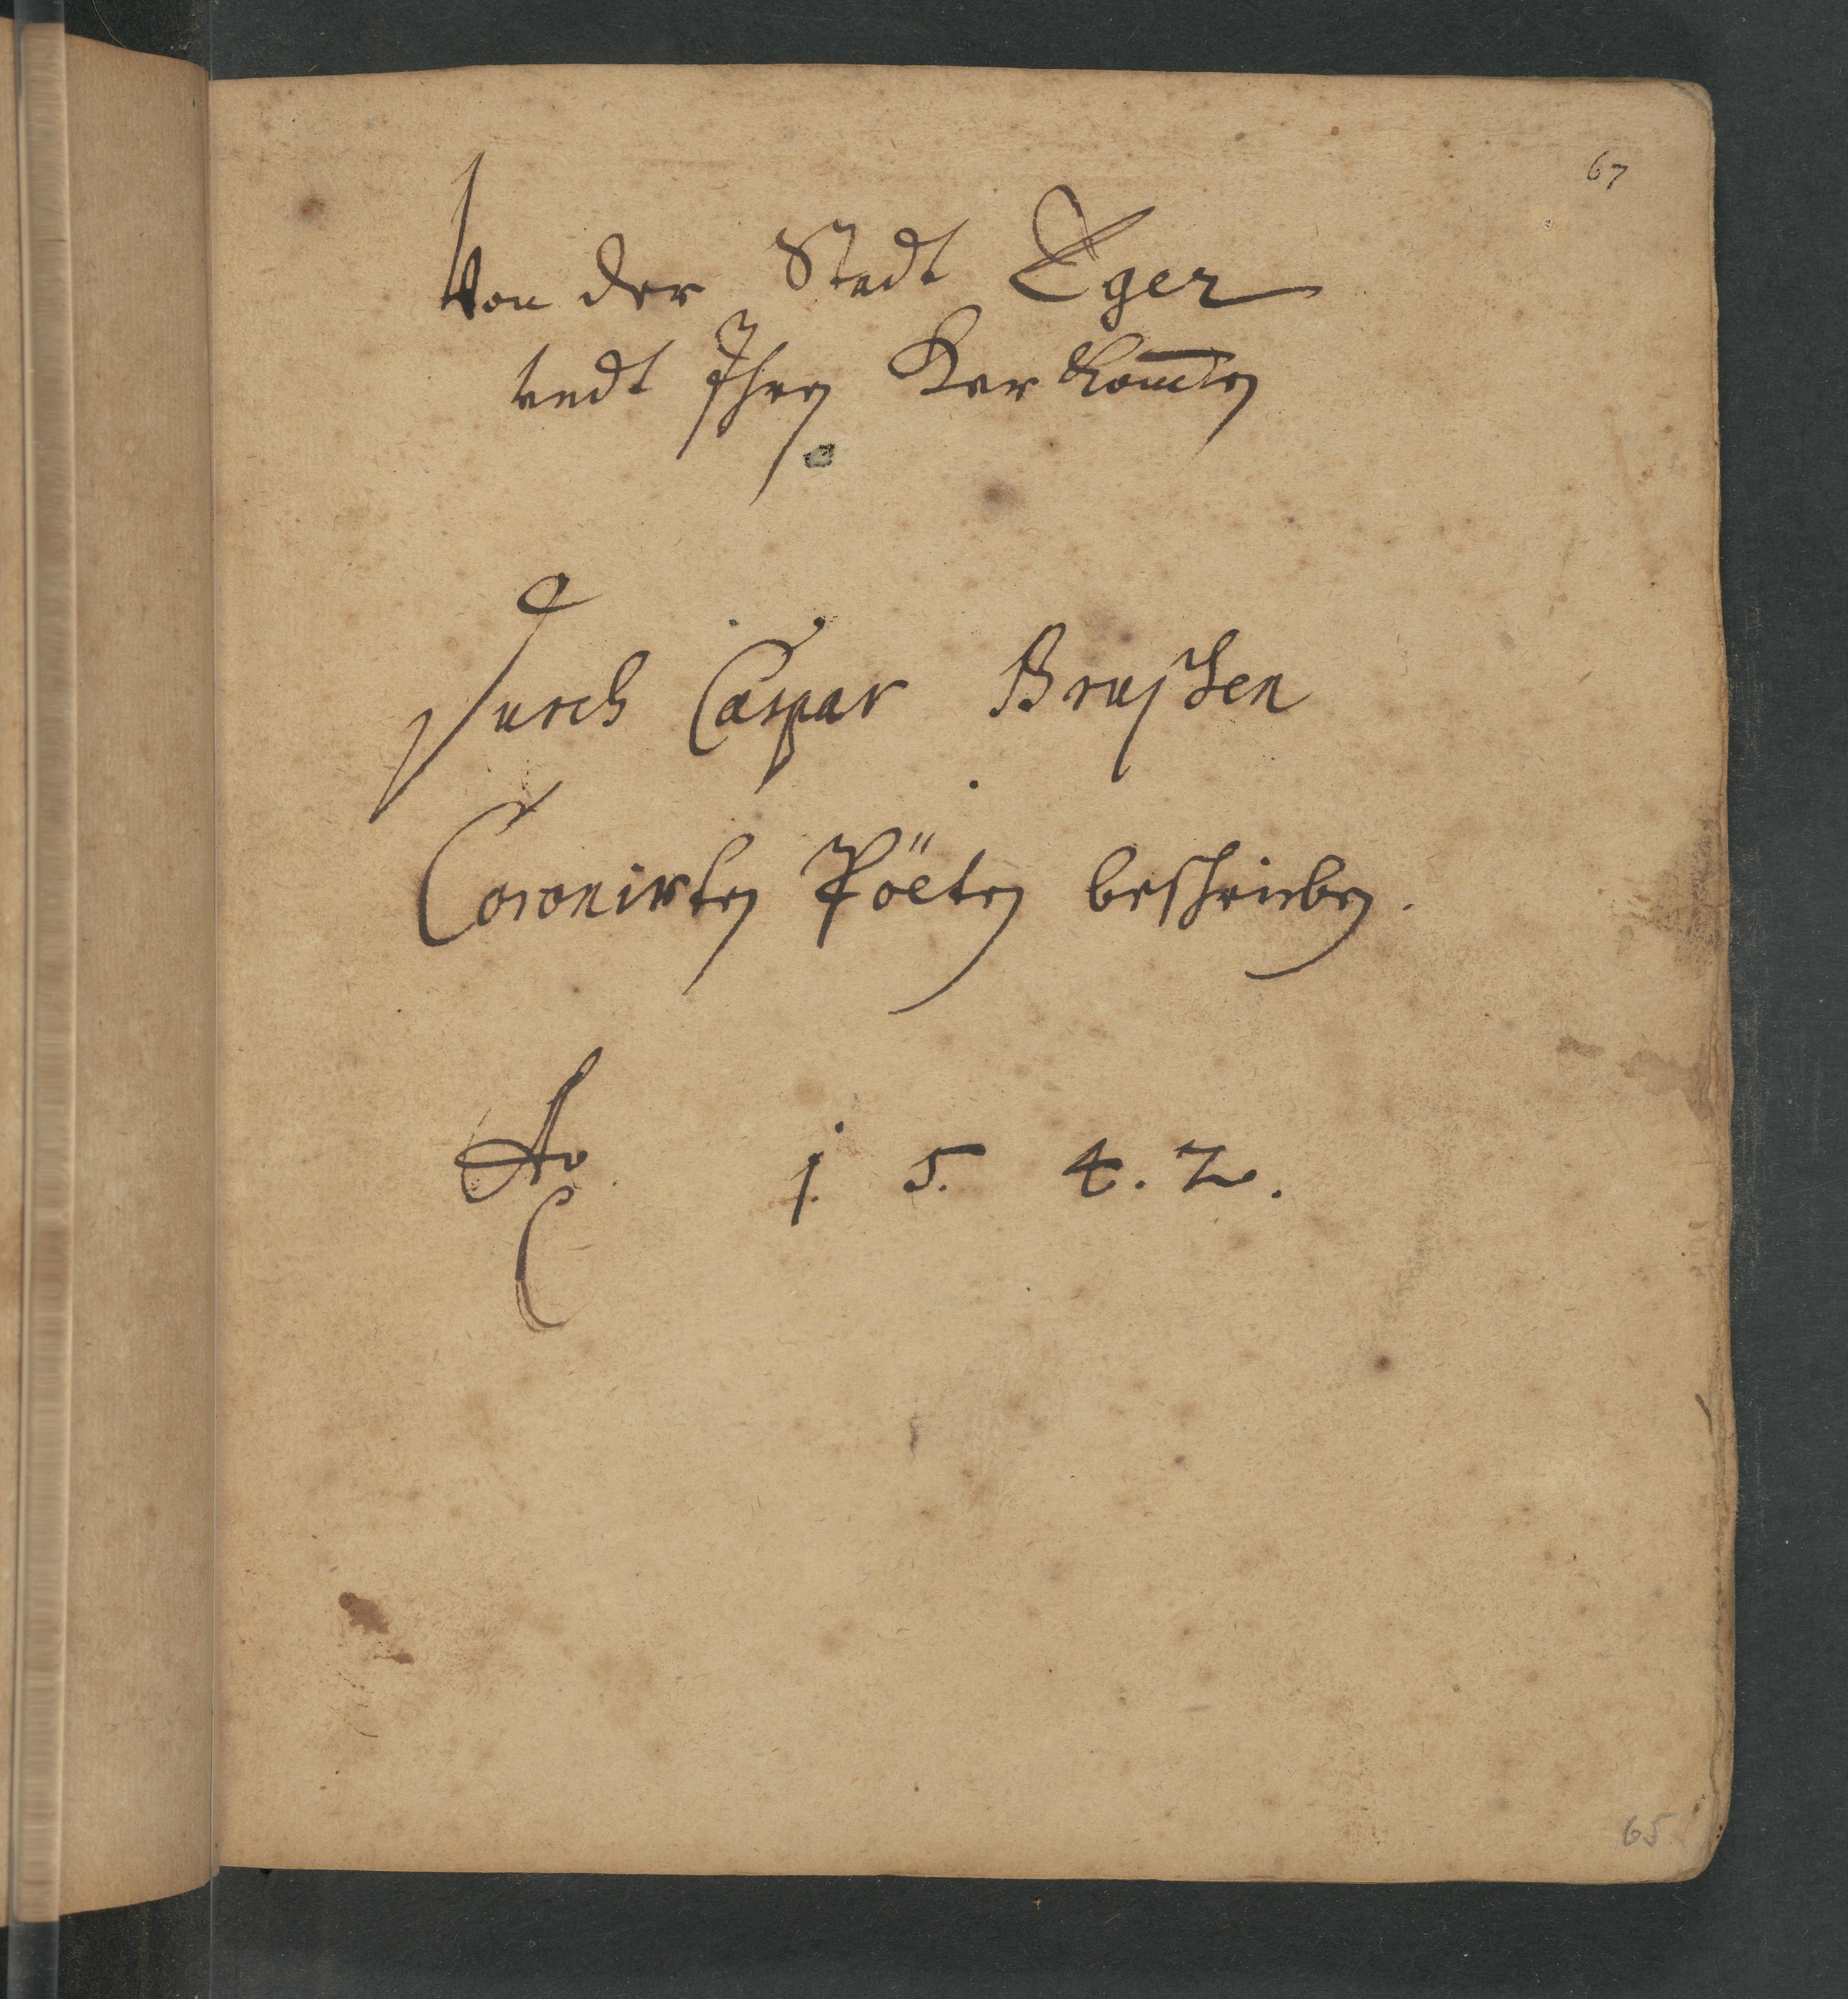 67
Von der Stadt Eger
vndt Ihren Herkomen
Durch Caspar Bruschen
Coronirten Pöeten beschrieben.
Ao 1. 5. 4. 2.
65